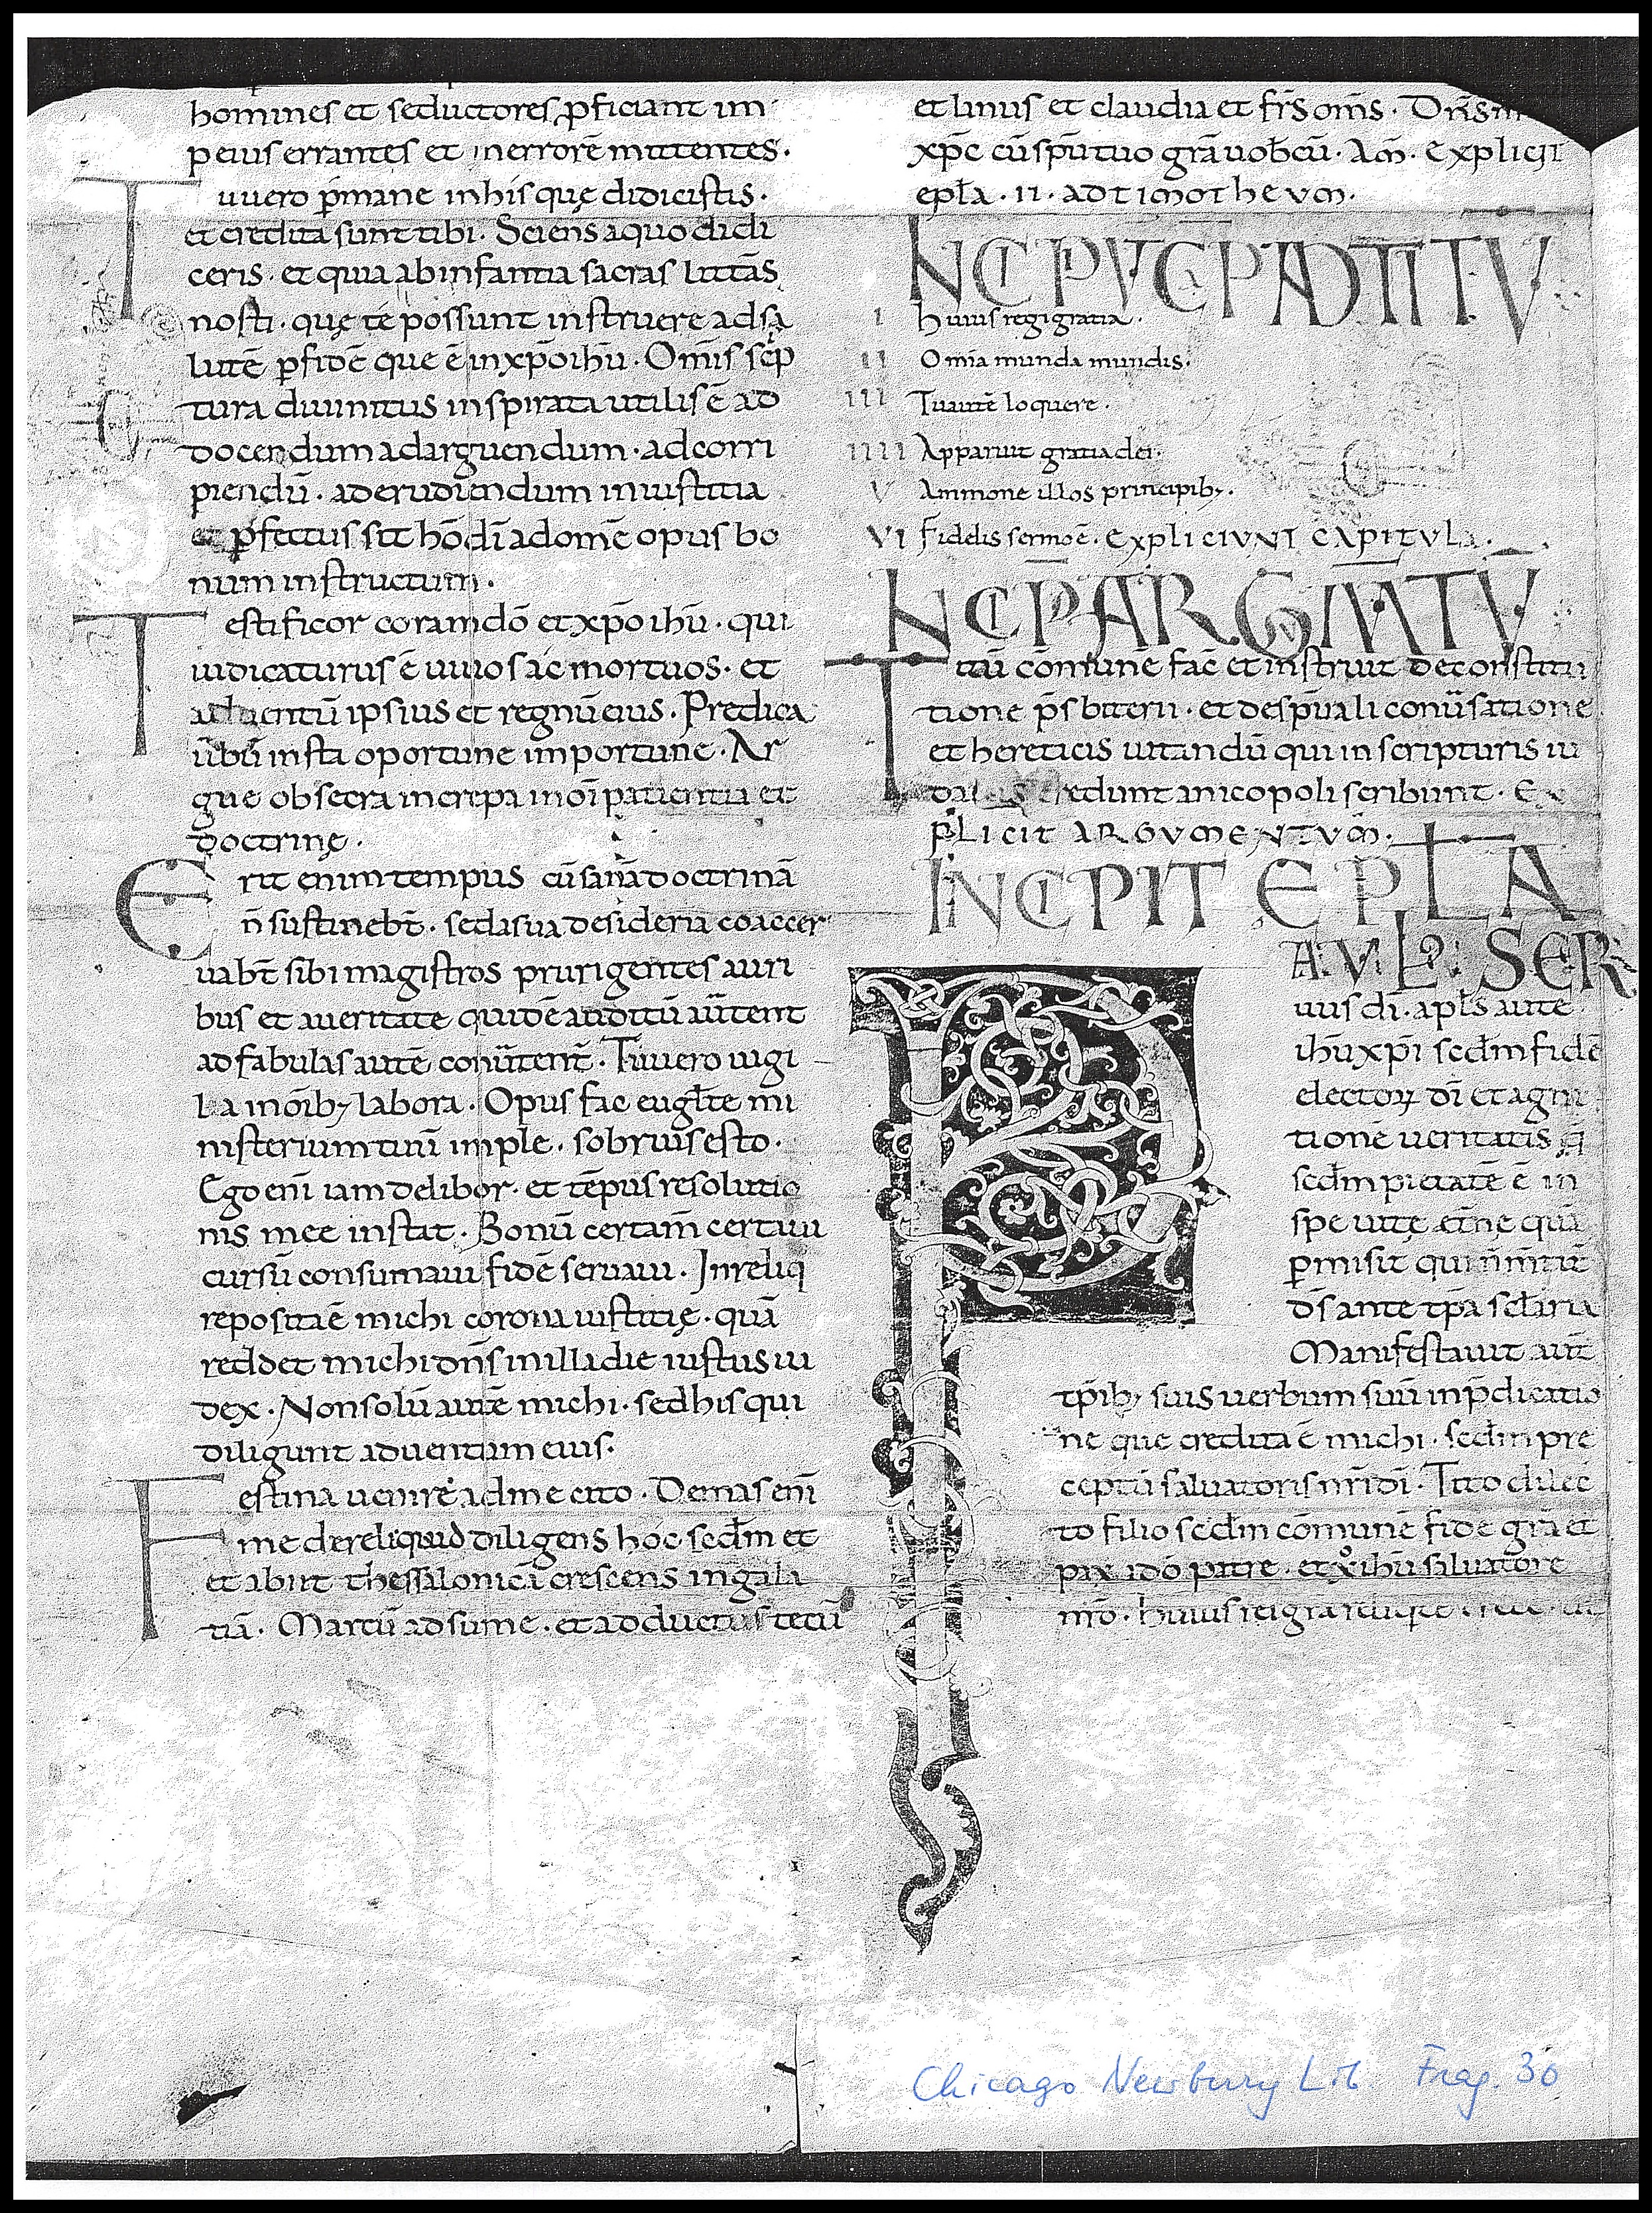 homines et seductores ꝓficiant im
peius errantes et in errorē mittentes.
Tu uero ꝑmane in his quę didicistis.
et credita sunt tibi. Sciens a quo didi
ceris. et quia ab infantia sacras littās
nosti. quę te possunt instruere ad sa
lutē ꝑ fidē que ē in xp̄o ihū. Om̄is sc̄p
tura diuinitus inspirata utilis ē ad
docendum ad arguendum. ad corri
piendū. ad erudiendum in iustitia
ꝑfectus sit hō dī ad omē opus bo
num instructum.
Testificor coram dō et xp̄o ihū. qui
iudicaturus ē uiuos ac mortuos. et
aduentū ipsius et regnū eius. Predica
ūbū insta oportune importune. Ar
gue obsecra increpa in oī patientia et
doctrinę.
Erit enim tempus cū sanā doctrinā
n̄ sustinebt̄. sed a sua desideria coaccer
uabt̄ sibi magistros prurigentes auri
bus et a ueritate quidē auditū aūtent
ad fabulas autē conūtent̄. Tu uero uigi
la in oībꝫ labora. Opus fac eugl̄te mi
nisterium tuū imple. sobrius esto.
Ego enī iam delibor. et tēpus resolutio
nis mee instat. Bonū certam̄ certaui
cursū consumaui fidē seruaui. In reliq
reposita ē michi corona iustitię. quā
reddet michi dn̄s in illa die iustus iu
dex. Non solū autē michi. sed his qui
diligunt aduentum eius.
Festina uenire ad me cito. Demas enī
me dereliquid diligens hoc sec̄lm et
et abiit thessalonicā crescens in gala
tiā. Marcū adsume. et adduc tecū
et linus et claudia et frs̄ om̄s. Dn̄s
xp̄c cū sp̄u tuo grā uobcū. Am̄. Explicit
epl̄a. II. ad timotheum.
INCIPIUNT CAP AD TITU
I Huius rei gratia.
II Omīa munda mundis.
III Tu autē loquere.
IIII Apparuit gratia dei.
V Ammone illos principibꝫ.
VI Fidelis sermo ē. Expliciunt capitula.
INCIP ARGUMTU
Titū cōmunē fac̄ et instruit de constitu
tione p̄sbiterii. et de sp̄uali conūsatione
et hereticis uitandū qui in scripturis iu
credunt a nicopoli scribunt. Ex
plicit argumentum.
INCIPIT EPLA
PAUL: SER
uus dī. apl̄s aute
ihū xp̄i secd̄m fidē
electoꝝ dī et agni
tionē ueritatis q̄
secd̄m pietatē ē in
spe uitę et̄ne quā
ꝓmisit qui n̄ m̄tit̄
ds̄ ante tp̄a sec̄laria
Manifestauit aut̄
tp̄ibꝫ suis uerbum suū in p̄dicatio
ne que credita ē michi. secd̄m pre
ceptū saluatoris nr̄i dī. Tito dilec
to filio secd̄m cōmunē fidē grā et
pax a dō patre. et xp̄o ihū saluatore
nr̄o. Huius rei gra
Chicago Newbury Lib. Frag. 30